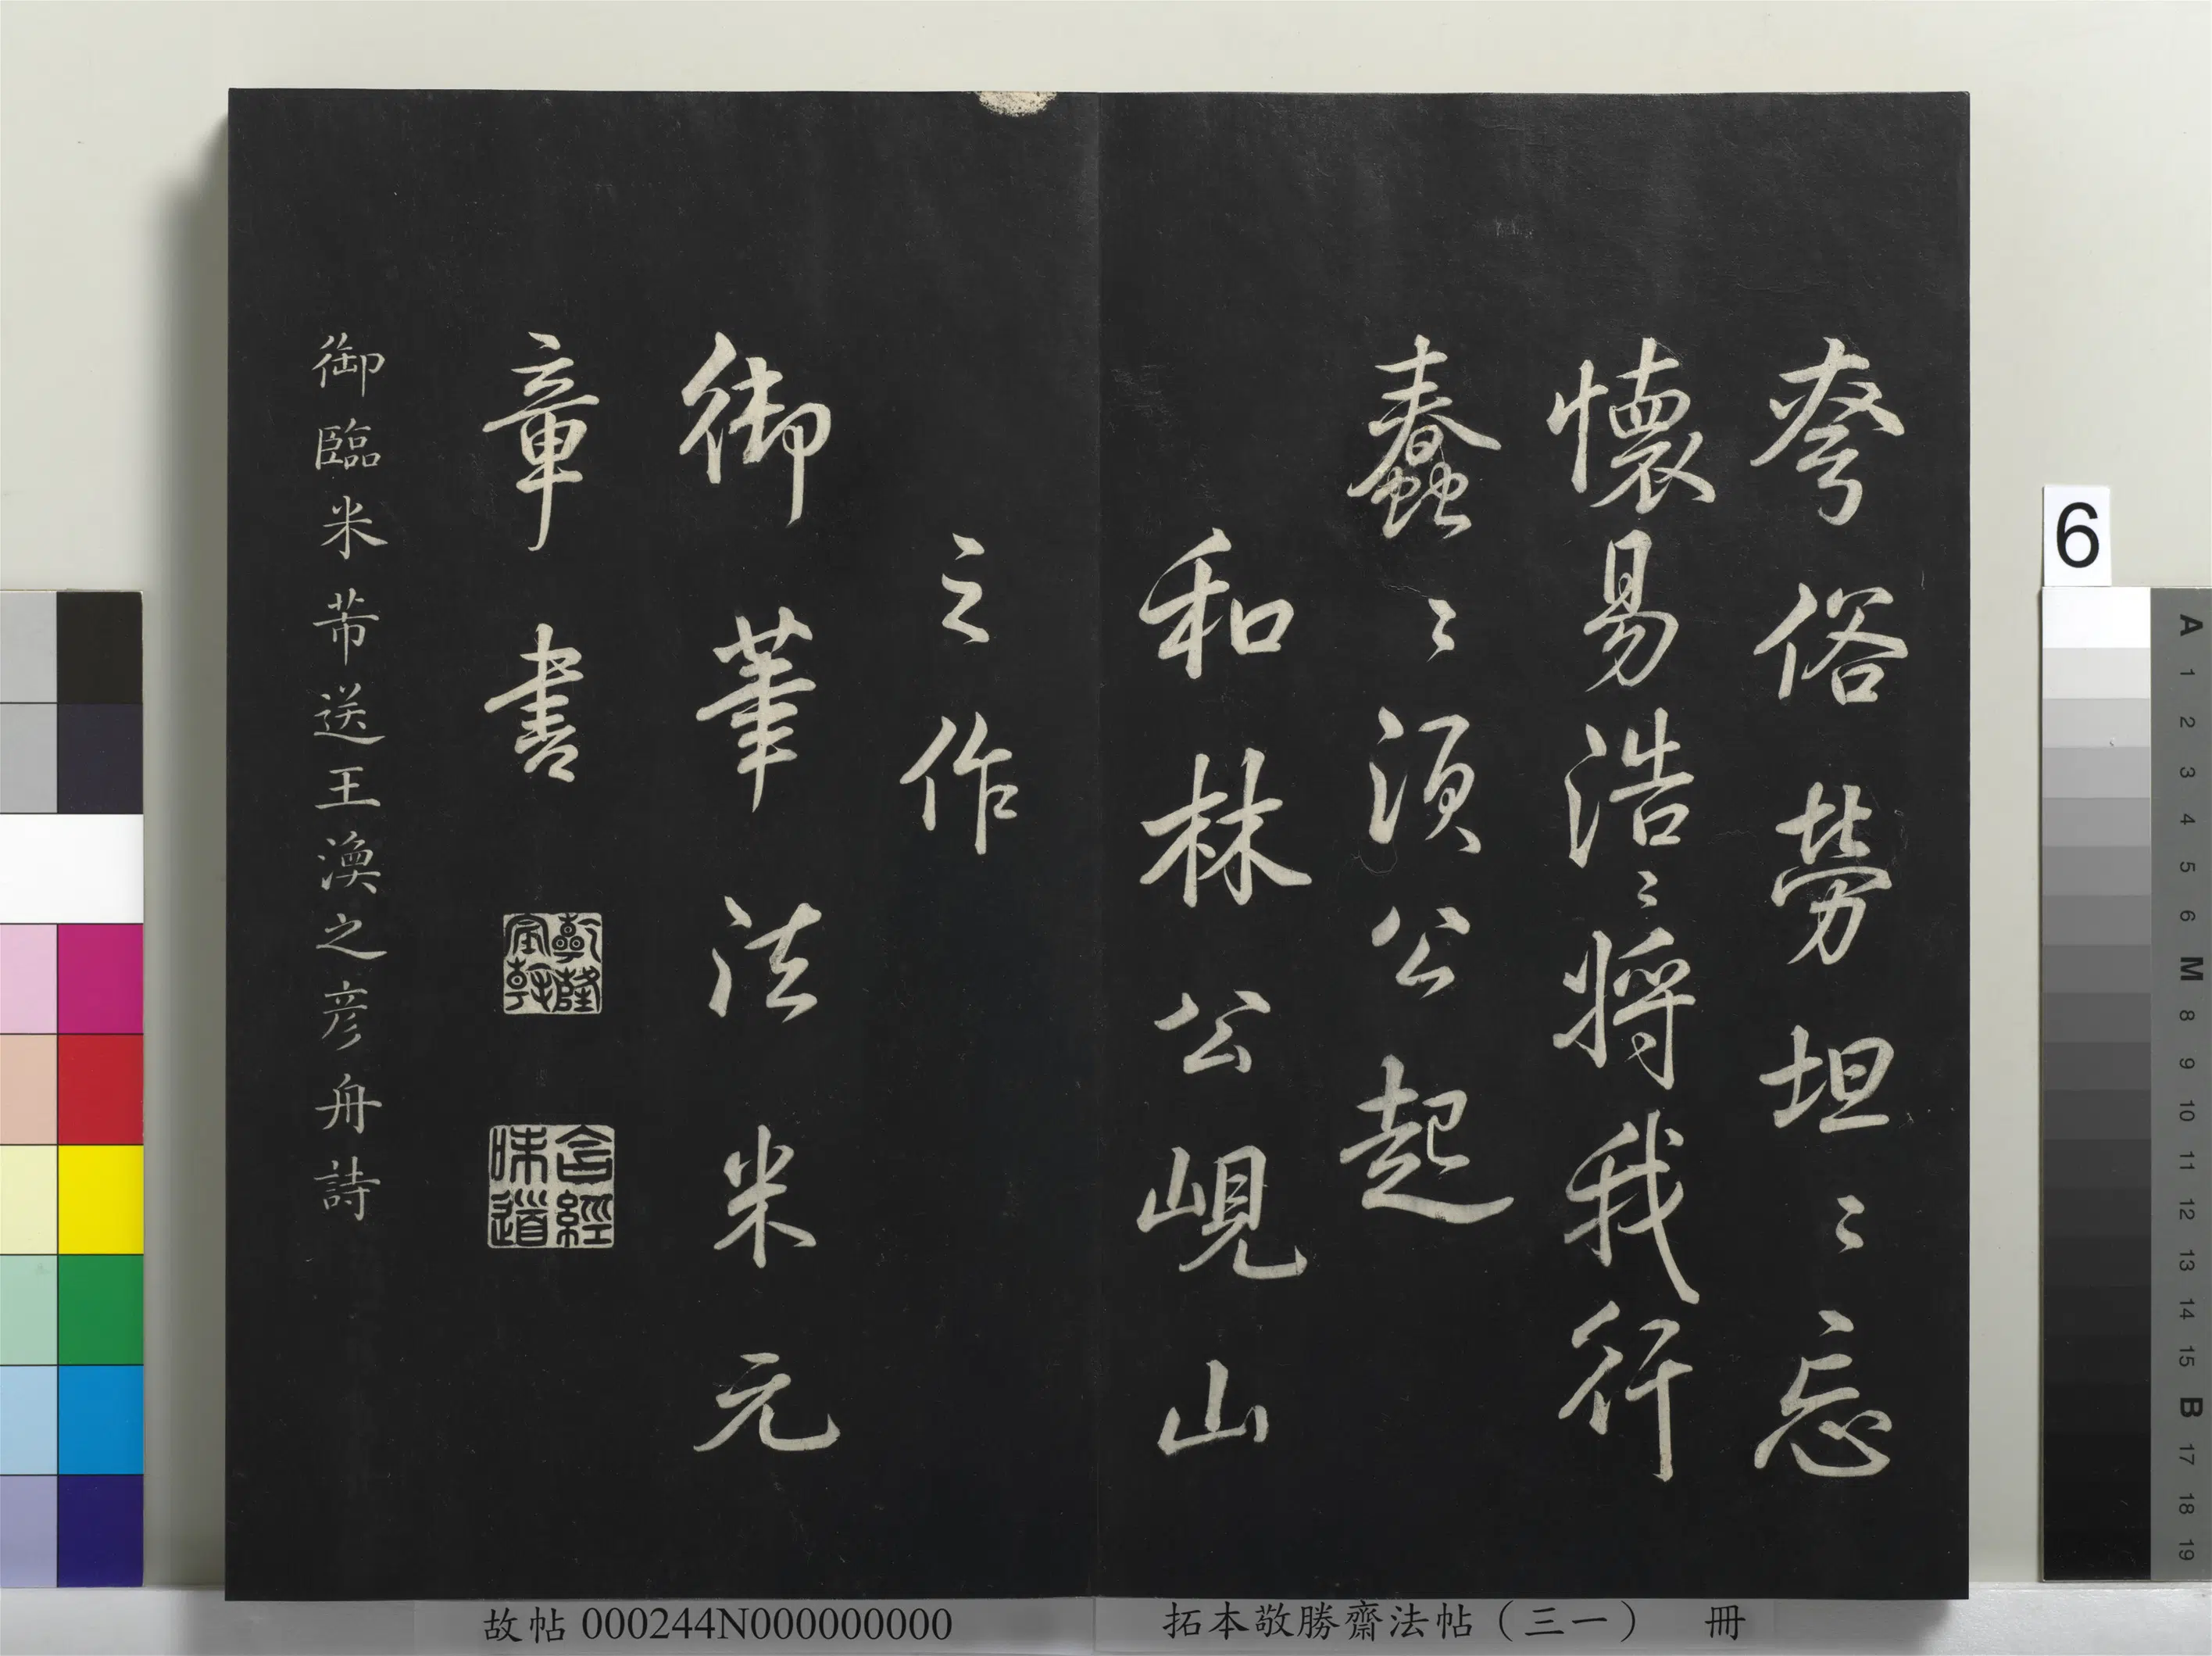 夸俗勞坦〻忘
懷易浩〻將我行
蠢〻須公起
和林公峴山
之作
御筆法米元
章書
乾隆宸翰
含經味道
御臨米芾送王渙之彥舟詩
拓本敬勝齋法帖（三一） 冊
故帖 000244N000000000
6
A 1 2 3 4 5 6 M 8 9 10 11 12 13 14 15 B 17 18 19